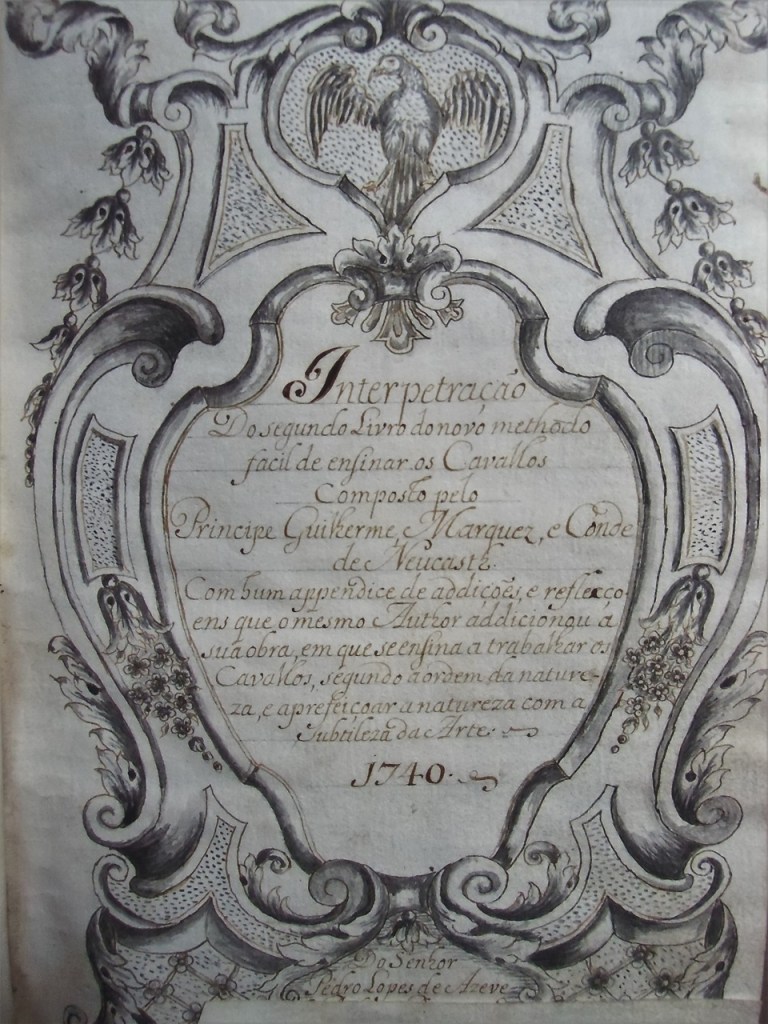 Interpetração
Do segundo Livro do novo methodo
facil de ensinar os Cavallos
Composto pelo
Principe Guilherme, Marquez, e Conde
de Neucastl.
Com hum appendice de addições, e reflecço-
ens que o mesmo Author addicionou á
sua obra, em que se ensina a trabalhar os
Cavallos, segundo a ordem da nature-
za, e aprefeiçoar a natureza com a
Subtileza da Arte.
1740.
Do Senhor
Pedro Lopes de Azeve